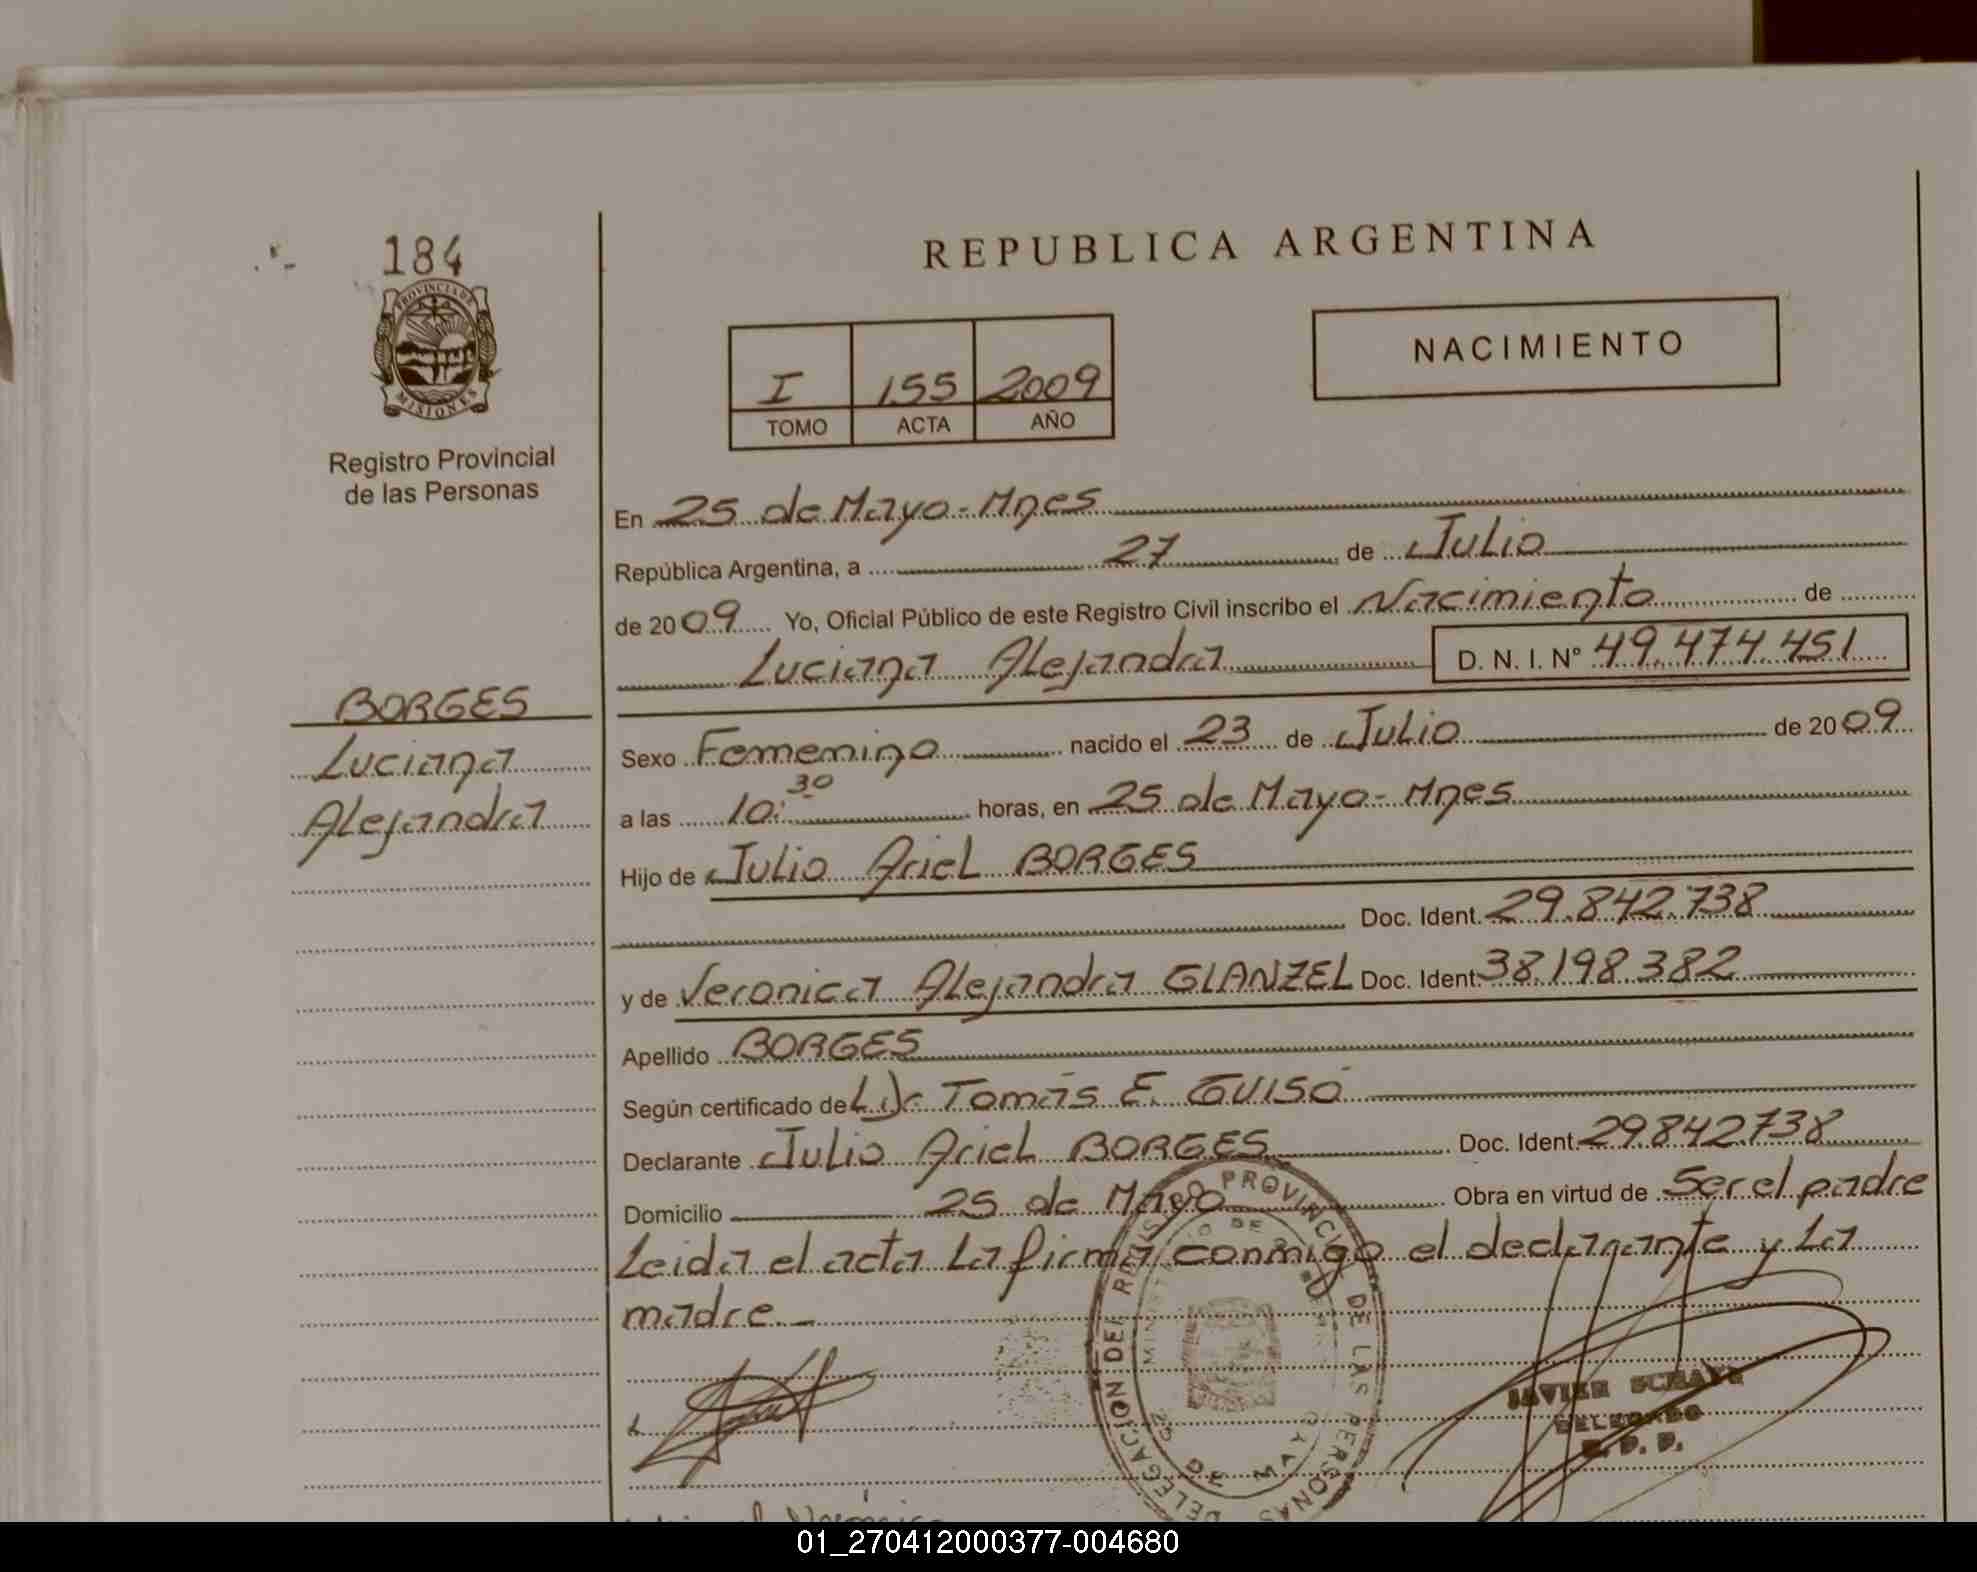 184
PROVINCIA DE
MISIONES
Registro Provincial
de las Personas
BORGES
Luciana
Alejandra
REPUBLICA ARGENTINA
I 155 2009
TOMO ACTA AÑO
NACIMIENTO
En 25 de Mayo - Mnes
República Argentina, a 27 de Julio
de 2009 Yo, Oficial Público de este Registro Civil inscribo el Nacimiento de
Luciana Alejandra D. N. I. Nº 49.474.451
Sexo Femenino nacido el 23 de Julio de 2009
a las 10:30 horas, en 25 de Mayo - Mnes
Hijo de Julio Ariel BORGES
Doc. Ident. 29.842.738
y de Veronica Alejandra GLANZEL Doc. Ident. 38.198.382
Apellido BORGES
Según certificado del Dr. Tomás E. GUISÓ
Declarante Julio Ariel BORGES Doc. Ident. 29.842.738
Domicilio 25 de Mayo Obra en virtud de Ser el padre
Leida el acta la firma conmigo el declarante y la
madre.-
DELEGACIÓN DEL REGISTRO PROVINCIAL DE LAS PERSONAS
25 DE MAYO
JAVIER
DELEGADO
R. P. P.
01_270412000377-004680